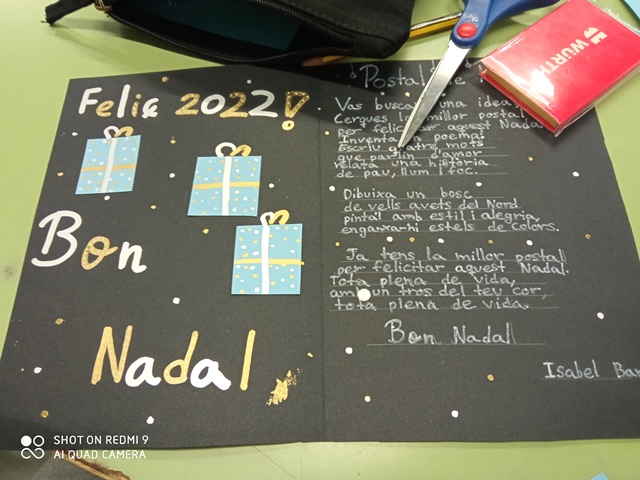 Feliç 2022!
Bon
Nadal
Postal de
Vas buscant una idea,
Cerques la millor postal
per felicitar aquest Nadal
Inventa un poema
Escriu quatre mots
que parlin d'amor
relata una història
de pau, llum i foc.
Dibuixa un bosc
de vells avets del Nord
pinta'l amb estil i alegria,
enganxa-hi estels de colors.
Ja tens la millor postal
per felicitar aquest Nadal.
Tota plena de vida,
amb un tros del teu cor,
tota plena de vida.
Bon Nadal
Isabel Bar
WÜRTH
SHOT ON REDMI 9
AI QUAD CAMERA